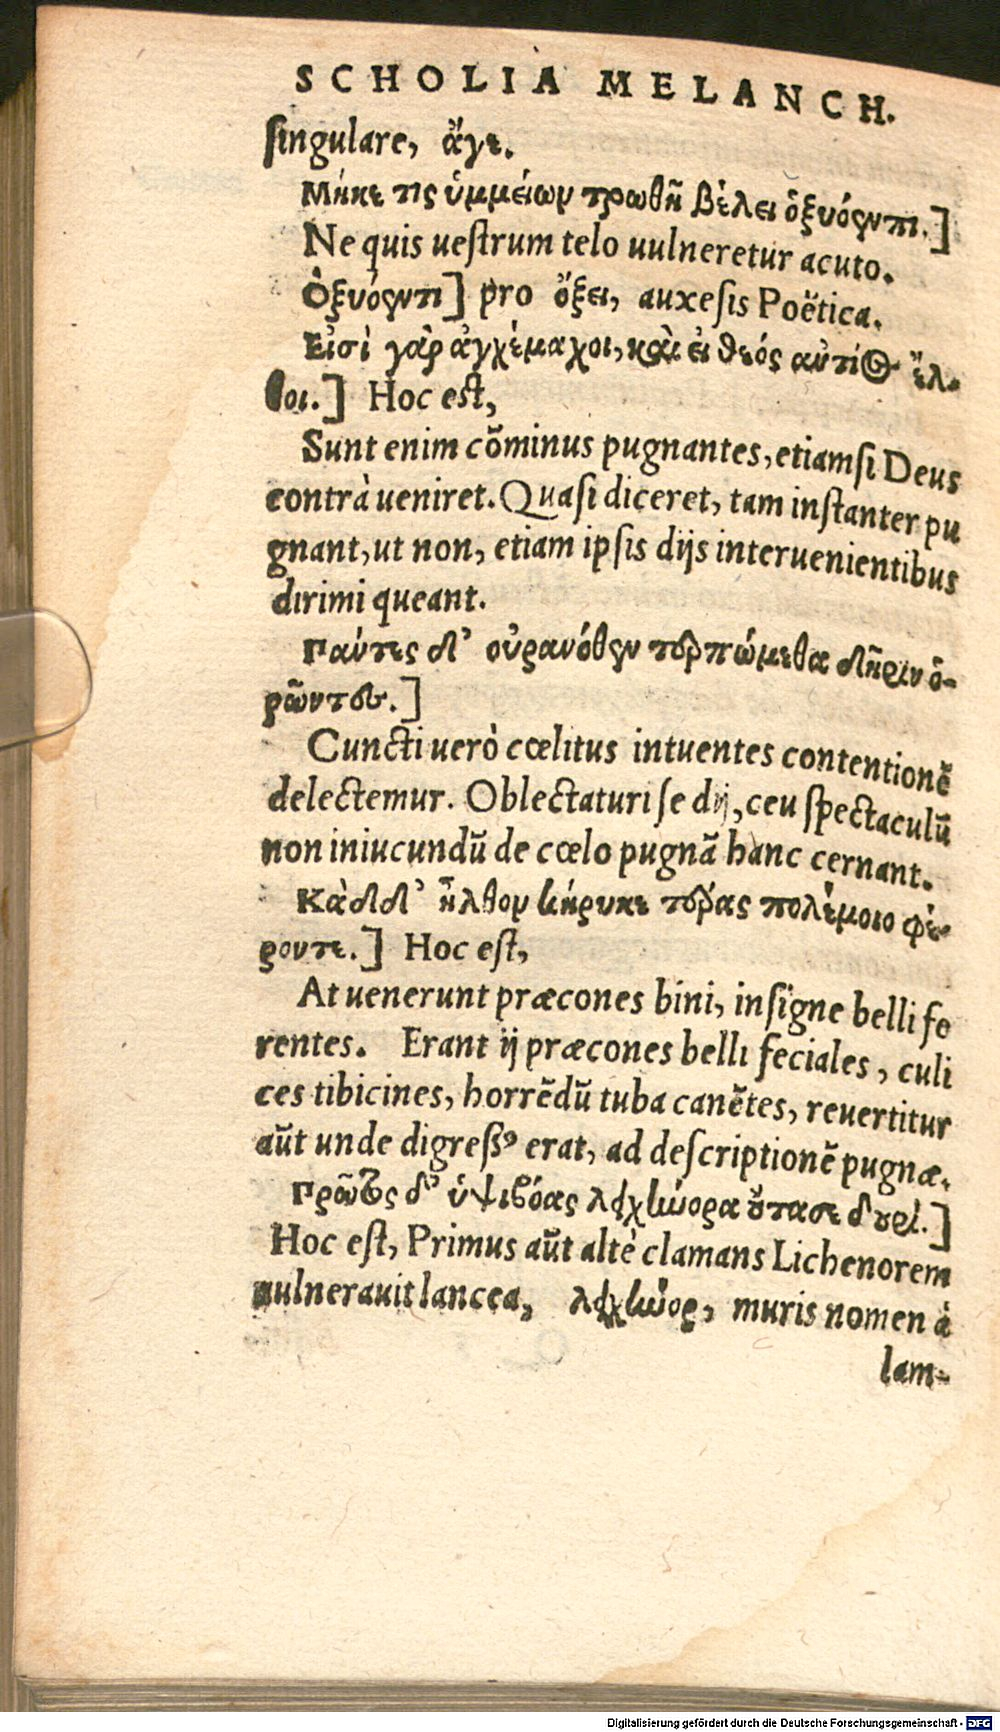 SCHOLIA MELANCH.
ſingulare, ἄγε.
Μήκε τις ὑμμείων τρωθῆ βέλει ὀξυόεντι.]
Ne quis ueſtrum telo uulneretur acuto.
Ὀξυόεντι] pro ὄξει, auxeſis Poëtica.
Εἰσὶ γὰρ ἀγχέμαχοι, καὶ εἰ θεός αὐτίος ἔλ-
θοι.] Hoc eſt,
Sunt enim cōminus pugnantes, etiamſi Deus
contrà ueniret. Quaſi diceret, tam inſtanter pu
gnant, ut non, etiam ipſis dijs interuenientibus
dirimi queant.
Πάντες δ' οὐρανόθεν τερπώμεθα δῆριν ὁ-
ρῶντες.]
Cuncti uerò cœlitus intuentes contentionē
delectemur. Oblectaturi ſe dij, ceu ſpectaculū
non iniucundū de cœlo pugnā hanc cernant.
Κὰδ δ' ἦλθον κήρυκε τέρας πολέμοιο φέ-
ροντε.] Hoc eſt,
At uenerunt præcones bini, inſigne belli fe
rentes. Erant ij præcones belli feciales, culi
ces tibicines, horrēdū tuba canētes, reuertitur
aūt unde digreſsꝰ erat, ad deſcriptionē pugnæ.
Πρῶτος δ' ὑψιβόας λειχήνορα οὔτασε δουρί.]
Hoc eſt, Primus aūt altè clamans Lichenorem
uulnerauit lancea, λειχήνορ, muris nomen à
lam-
Digitalisierung gefördert durch die Deutsche Forschungsgemeinschaft - DFG